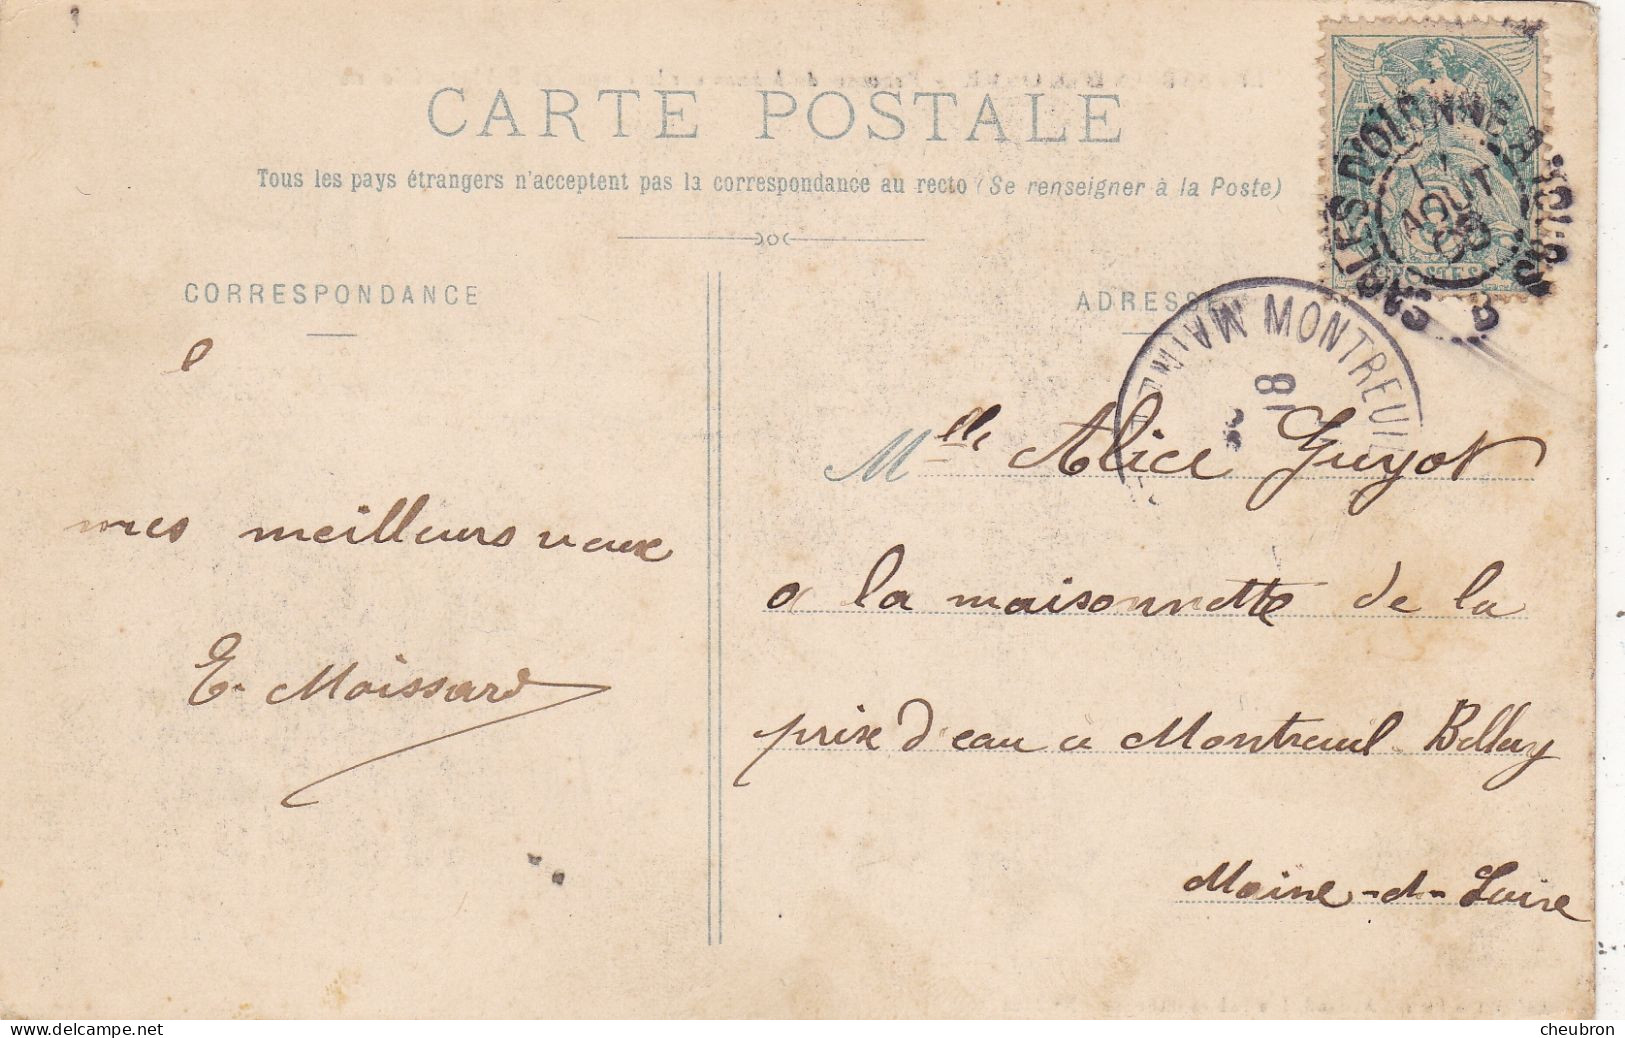 CARTE POSTALE
Tous les pays étrangers n'acceptent pas la correspondance au recto (Se renseigner à la Poste)
CORRESPONDANCE
ADRESSE
SABLES D'OLONNE A
AOUT
POSTES
B
MONTREUIL
MAINE
8
Mlle Alice Guyot
a la maisonnette de la
prise d'eau a Montreuil Bellay
Maine-et-Loire
mes meilleurs veux
E. Moissard
cheubron
www.delcampe.net